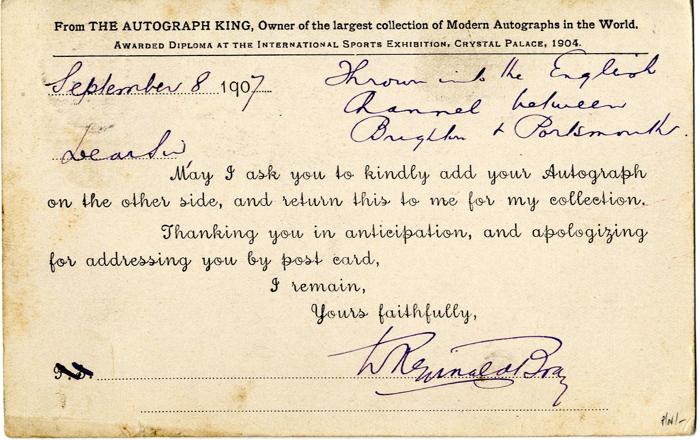 From THE AUTOGRAPH KING, Owner of the largest collection of Modern Autographs in the World.
AWARDED DIPLOMA AT THE INTERNATIONAL SPORTS EXHIBITION, CRYSTAL PALACE, 1904.
September 8 1907
Thrown into the English
Channel between
Brighton & Portsmouth.
Dear Sir
May I ask you to kindly add your Autograph
on the other side, and return this to me for my collection.
Thanking you in anticipation, and apologizing
for addressing you by post card,
I remain,
Yours faithfully,
W Reginald Bray